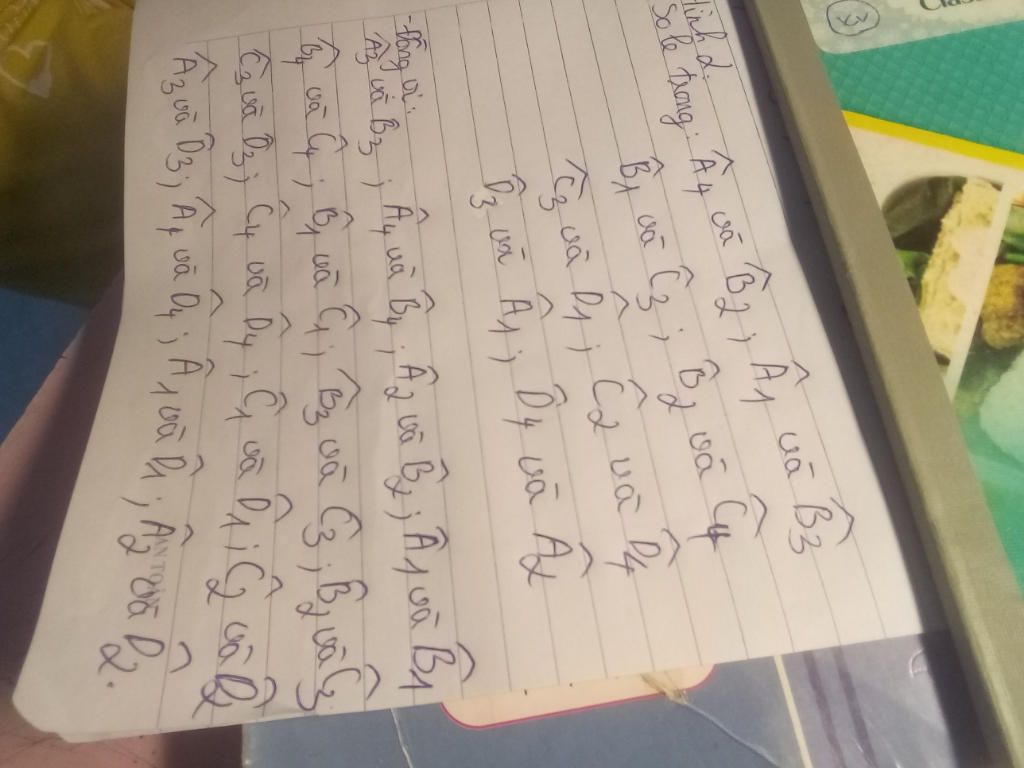 Hình 2.
So le trong: Â4 và B̂2; Â1 và B̂3
B̂1 và Ĉ3; B̂2 và Ĉ4
Ĉ3 và D̂1; Ĉ2 và D̂4
D̂3 và Â1; D̂4 và Â2
- Đồng vị:
Â3 và B̂3; Â4 và B̂4; Â2 và B̂2; Â1 và B̂1
B̂4 và Ĉ4; B̂1 và Ĉ1; B̂3 và Ĉ3; B̂2 và Ĉ3.
Ĉ3 và D̂3; Ĉ4 và D̂4; Ĉ1 và D̂1; Ĉ2 và D̂2
Â3 và D̂3; Â4 và D̂4; Â1 và D̂1; Â2 và D̂2.